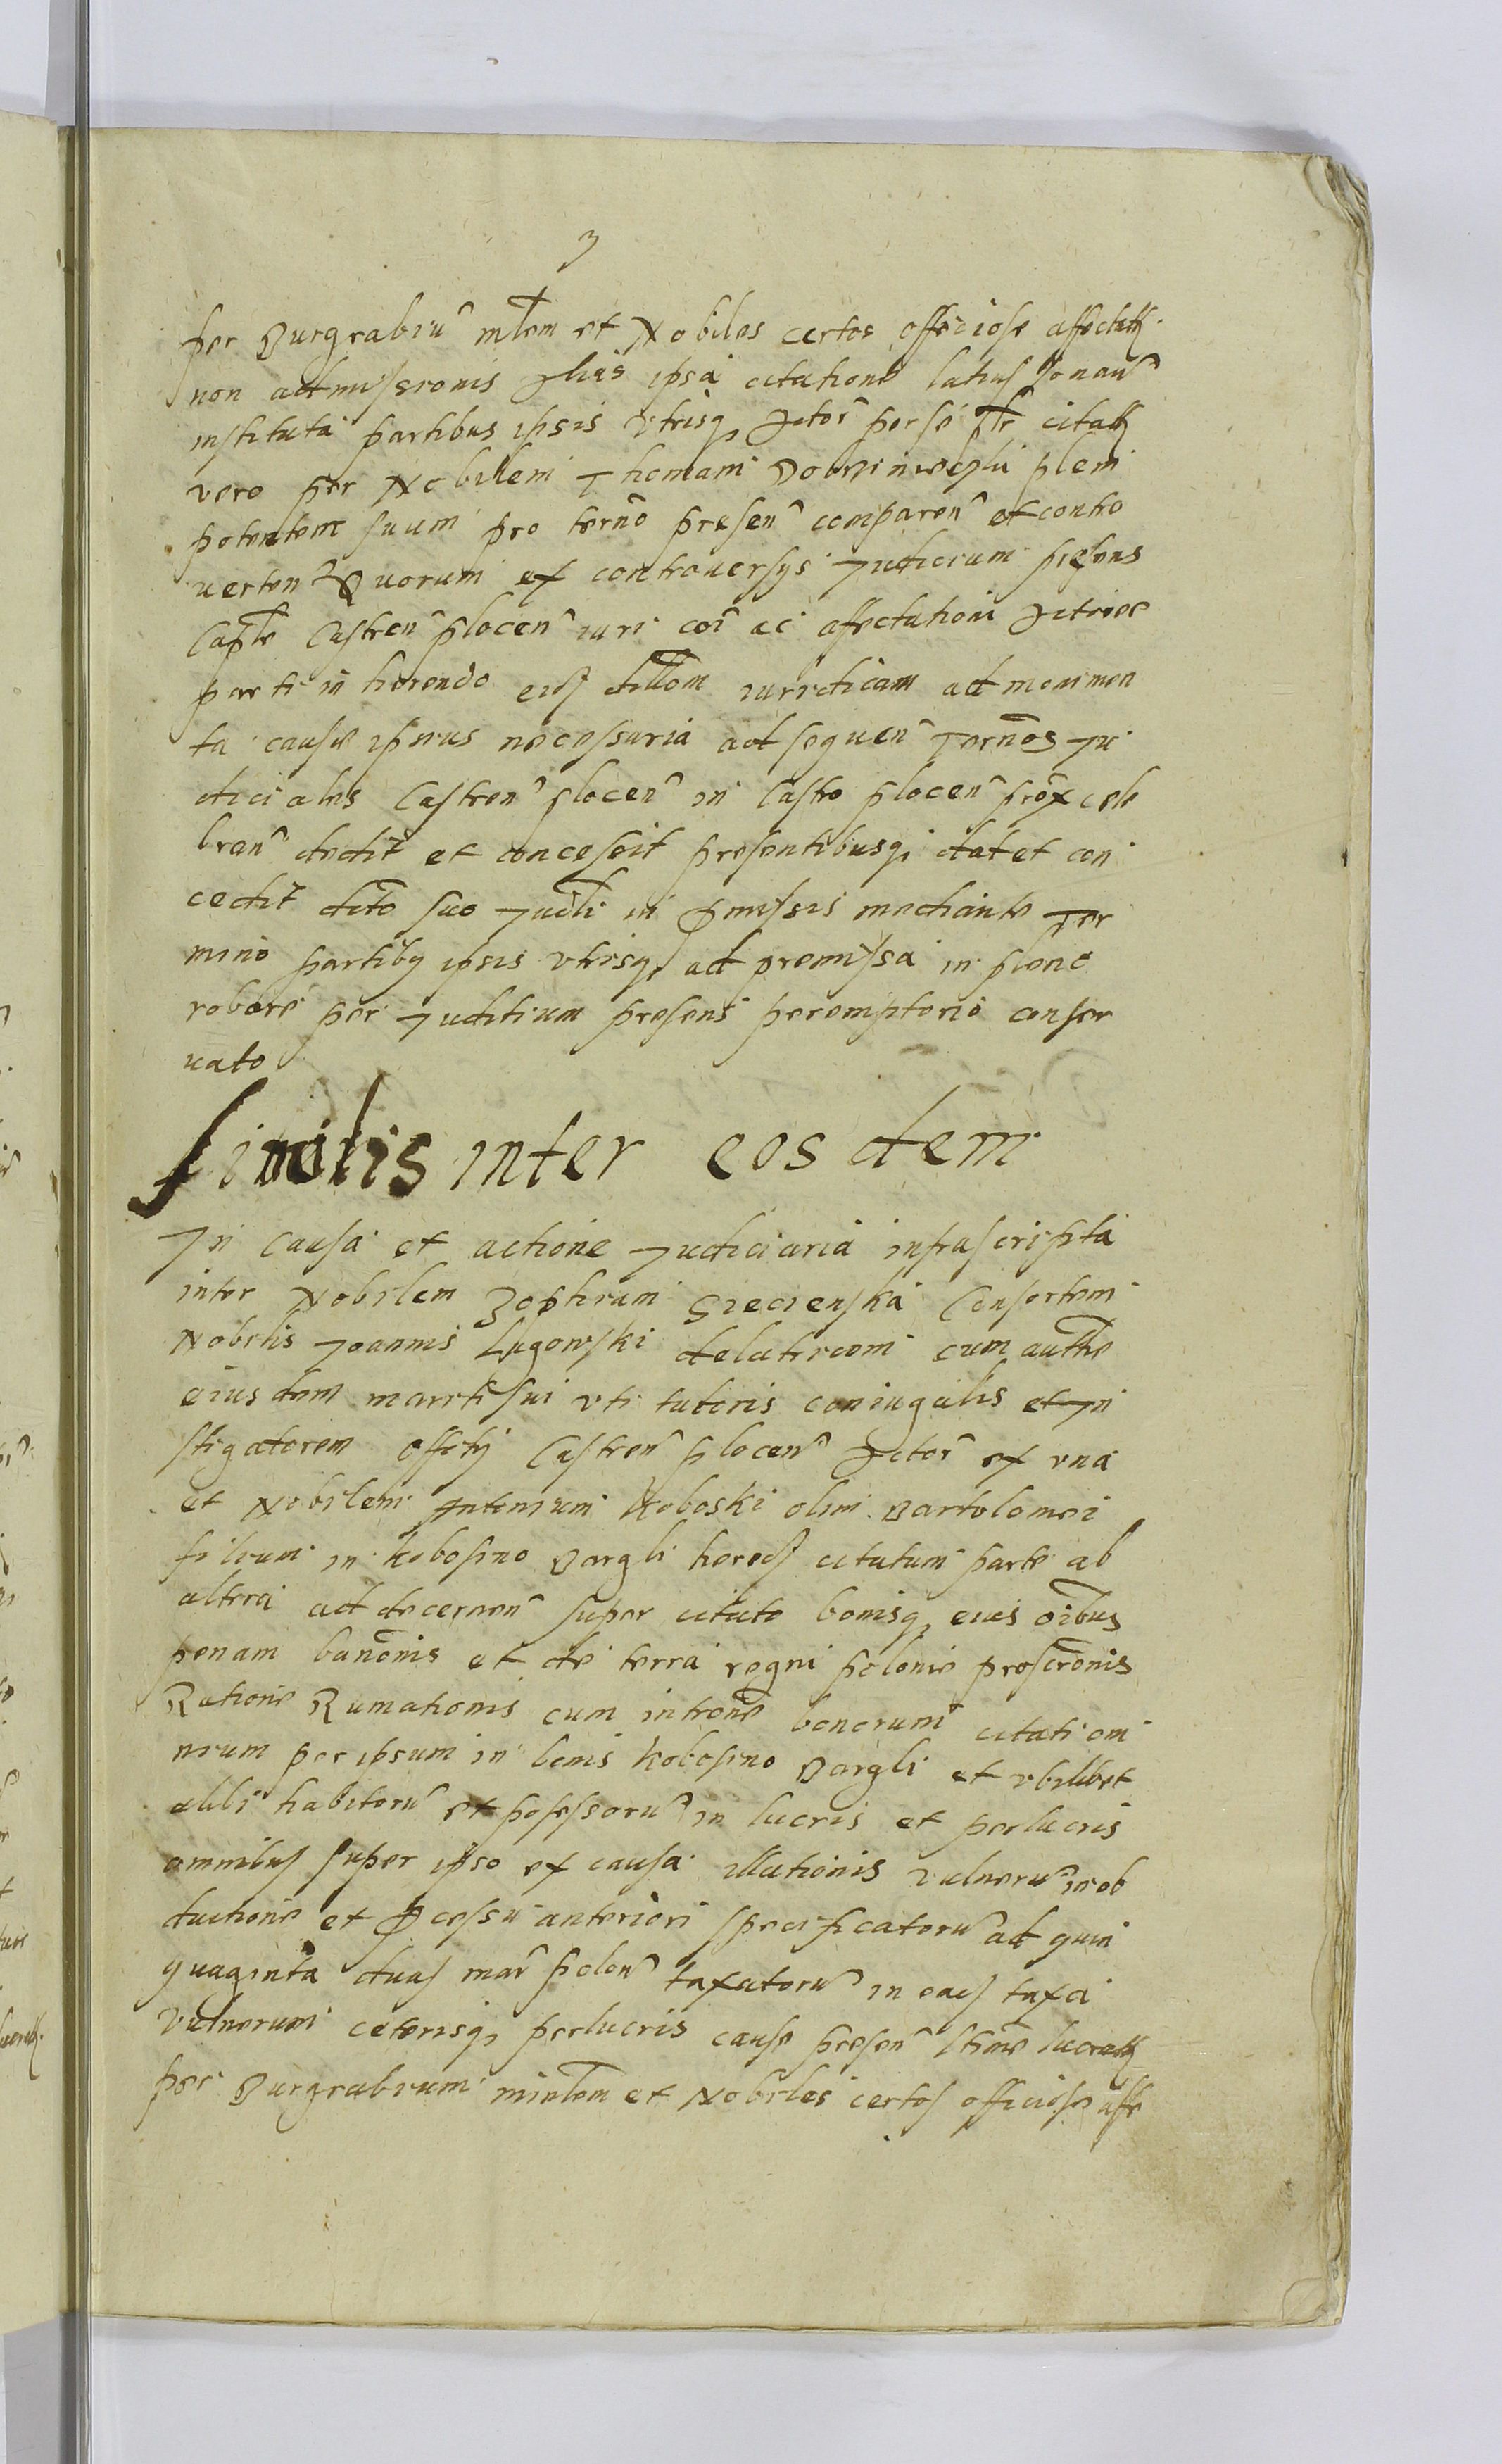 3
per Burgrabiu mlem et Nobiles certos officiose affectatt
non admissionis Alias ipsa citatione latius sonan
instituta partibus ipsis utrisq Actor per se ptr citatt
vero per Nobilem Thomam plem
potentem suum pro termo presen comparen et contro
verten Quorum ex controversys Judicium presens
Capte Castren plocen iuri coi ac affectationi Actoree
parti in herendo eid dillom iuridicam ad monimen
ta cause ipsius necessaria ad sequen Termos Ju
diciales Castren plocen in Castro plocen prox cele
bran dedit et concessit presentibusq dat et con
cedit dito suo Judli in pmissis mediante Ter
mino partibq ipsis utrisq ad premissa in pleno
robore per Juditium presens peremptorio conser
vato
similis inter eosdem
In causa et actione Judiciaria infrascripta
inter Nobilem Zophiam Consortem
Nobilis Joannis Lugowski delatricem cum authe
eiusdem mariti sui uti tutoris coniugalis et In
stigatorem officij Castren plocen Actor ex una
et Nobilem Antonium Koboski olim Bartolomei
filium in Kobosino Bargli hered citatum parte ab
altera ad decernen super citato bonisq eius oibus
penam banonis et de terra regni polonie proscronis
Ratione Rumationis cum introne bonorum citati om
nium per ipsum in bonis Kobosino Bargli et ubilibet
alibi habitoru et possessoru in lucris et perlucris
omnibus super ipso ex causa illationis vulneru in ob
ductione et pcessu anteriori specificatoru ad quin
quaginta duas mar polon taxatoru in ead taxa
vulnerum ceterisq perlucris cause presen stime lucratt
per Burgrabium minlem et Nobiles certos officiose affe